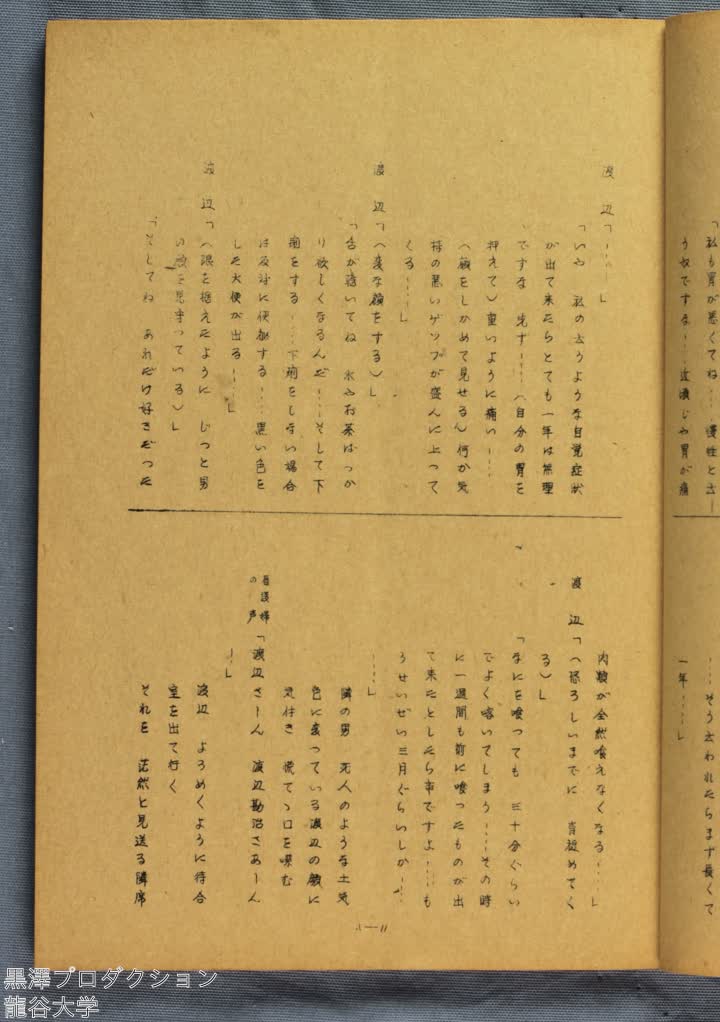 「私も胃が悪くてね……慢性と云ー
う奴ですな……近頃じや胃が痛
……そう云われたらまず長くて
一年……」
渡辺「……」
「いや 私の云うような自覚症状
が出て来たらとても一年は無理
ですな 先ず……(自分の胃を
押えて)重いように痛い……
(顔をしかめて見せる)何か気
持の悪いゲップが盛んに上って
くる……」
渡辺「(変な顔をする)」
「舌が渇いてね 水やお茶ばっか
り欲しくなるんだ……そして下
痢をする……下痢をしない場合
は反対に便秘する……黒い色を
した大便が出る……」
渡辺「(眼を据えたように じつと男
い顔を見守っている)」
「そしてね あれだけ好きだつた
肉類が全然喰えなくなる……」
渡辺「(恐ろしいまでに 青褪めてく
る)」
「なにを喰つても 三十分ぐらい
でよく吐いてしまう……その時
に一週間も前に喰ったものが出
て来たとしたら事ですよ……も
うせいぜい三月ぐらいしか……
……」
隣の男 死人のような土気
色に変っている渡辺の顔に
気付き 慌てゝ口を噤む
看護婦
の声「渡辺さーん 渡辺勘治さあーん
……」
渡辺 よろめくように待合
室を出て行く
それを 茫然と見送る隣席
A—11
黒澤プロダクション
龍谷大学